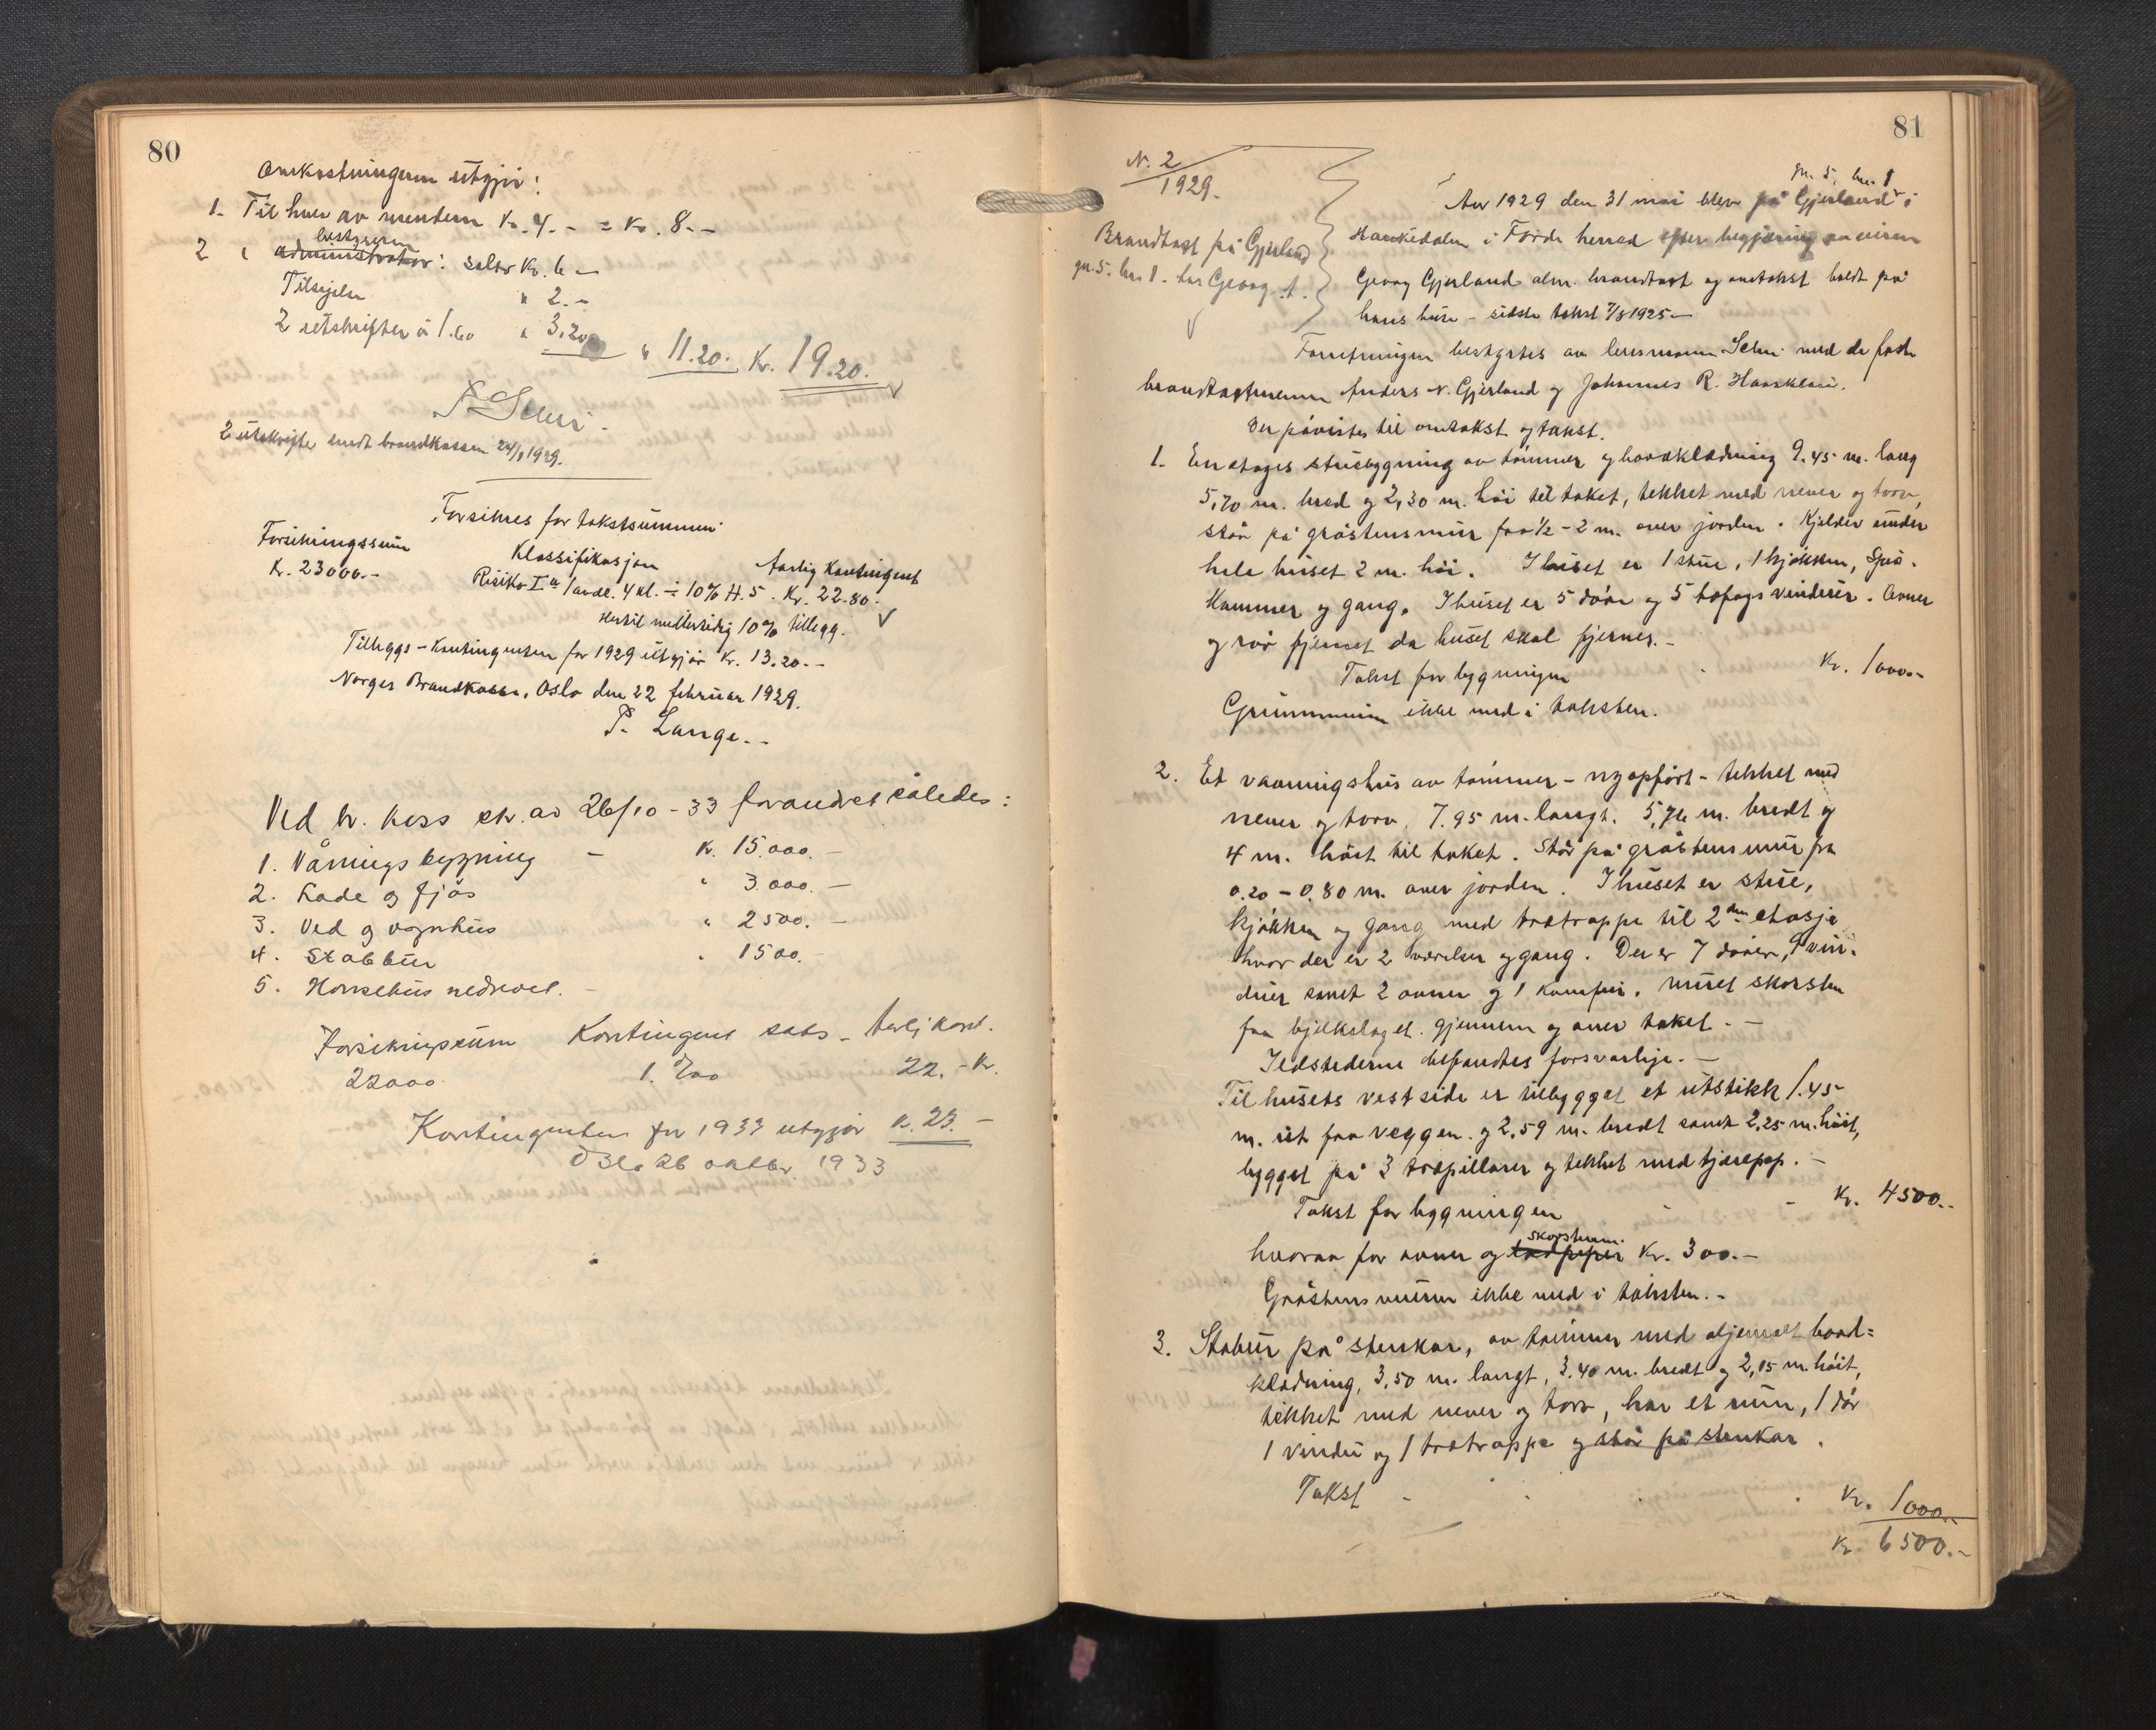 80
Omkostningerne utgjör:
1. Til hver av mendene Kr. 4.- = Kr. 8.-
bestyreren
2 " administrator: salær Kr. 6 -
Tilsigelse " 2.-
2 utskrifter à 1.60 " 3.20 " 11.20. Kr. 19.20.
2 utskrifter sendt brandkassen 1929.
Forsikres for takstsummen
Forsikringssum Klassifikasjon Aarlig Kontingent
Kr. 23000.- Risiko I a 1 avdl. 4 kl. ÷ 10% H. 5. Kr. 22.80.
Hertil midlertidig 10% tillegg.
Tilleggs-Kontingenten for 1929 utgjör Kr. 13.20.-
Norges Brandkasse, Oslo den 22 februar 1929.
P. Lange.-
Ved br. kass skr. av 26/10-33 forandret således:
1. Våningsbygning - kr. 15.000.-
2. Lade og fjös " 3.000.-
3. Ved og vognhus " 2500.-
4. Stabbur " 1500.-
5. Hönsehus nedrevet. -
Forsikringssum Kontingent sats - Aarlig kont.
22000 1. ‰ 22.- kr.
Kontingenten for 1933 utgjör kr. 23.-
Oslo 26 oktbr. 1933
81
N. 2
1929.
Brandtakst på Gjerland
gn. 5. br. 1. hos Georg
gn. 5, br. 1
Aar 1929 den 31 mai blev på Gjerland i
Haukedalen i Förde herred efter begjæring av eieren
Georg Gjerland alm. brandtakst og omtakst holdt på
hans huse - sidste takst 7/8 1925-
Forretningen bestyrtes av lensmann med de faste
brandtakstmenn Anders N. Gjerland og Johannes R. Haarklau.
Der påvistes til omtakst og takst.
1. En etages stuebygning av tömmer og bordklædning 9.45 m. lang
5,70 m. bred og 2,30 m. höi til taket, tekket med never og torv,
står på gråstensmur fra 1/2 - 2 m. over jorden. Kjelder under
hele huset 2 m. höi. I huset er 1 stue, 1 kjökken, Spis-
kammer og gang. I huset er 5 dörer og 5 tofags vinduer. Ovner
og rör fjernet da huset skal fjernes.-
Takst for bygningen . Kr. 1000.-
Grunnmuren ikke med i taksten.
2. Et vaaningshus av tömmer - nyopfört - tekket med
never og torv. 7.95 m. langt. 5,76 m. bredt og
4 m. höit til taket. Står på gråstensmur fra
0.20 - 0.80 m. over jorden. I huset er stue,
kjökken og gang med trætrappe til 2den etasje
hvor der er 2 værelser og gang. Der er 7 dörer, 9 vin-
duer samt 2 ovner og 1 komfur. muret skorsten
fra bjelkelaget. gjennem og over taket.-
Ildstederne befandtes forsvarlige.-
Til husets vestside er tilbygget et utstikk 1.45
m. ut fra veggen. og 2,59 m. bredt samt 2,25 m. höit,
bygget på 3 træpillarer og tekket med tjærepap.-
Takst for bygningen - Kr. 4500.-
skorsten.
hvorav for ovner og Kr. 300.-
Gråstensmuren ikke med i taksten.-
3. Stabur på stenkar, av tömmer med bord=
klædning, 3,50 m. langt, 3.40 m. bredt og 2,15 m. höit,
tekket med never og torv, har et rum, 1 dör
1 vindu og 1 trætrappe og står på stenkar.
Takst - . . Kr. 1000.-
Kr. 6500.-